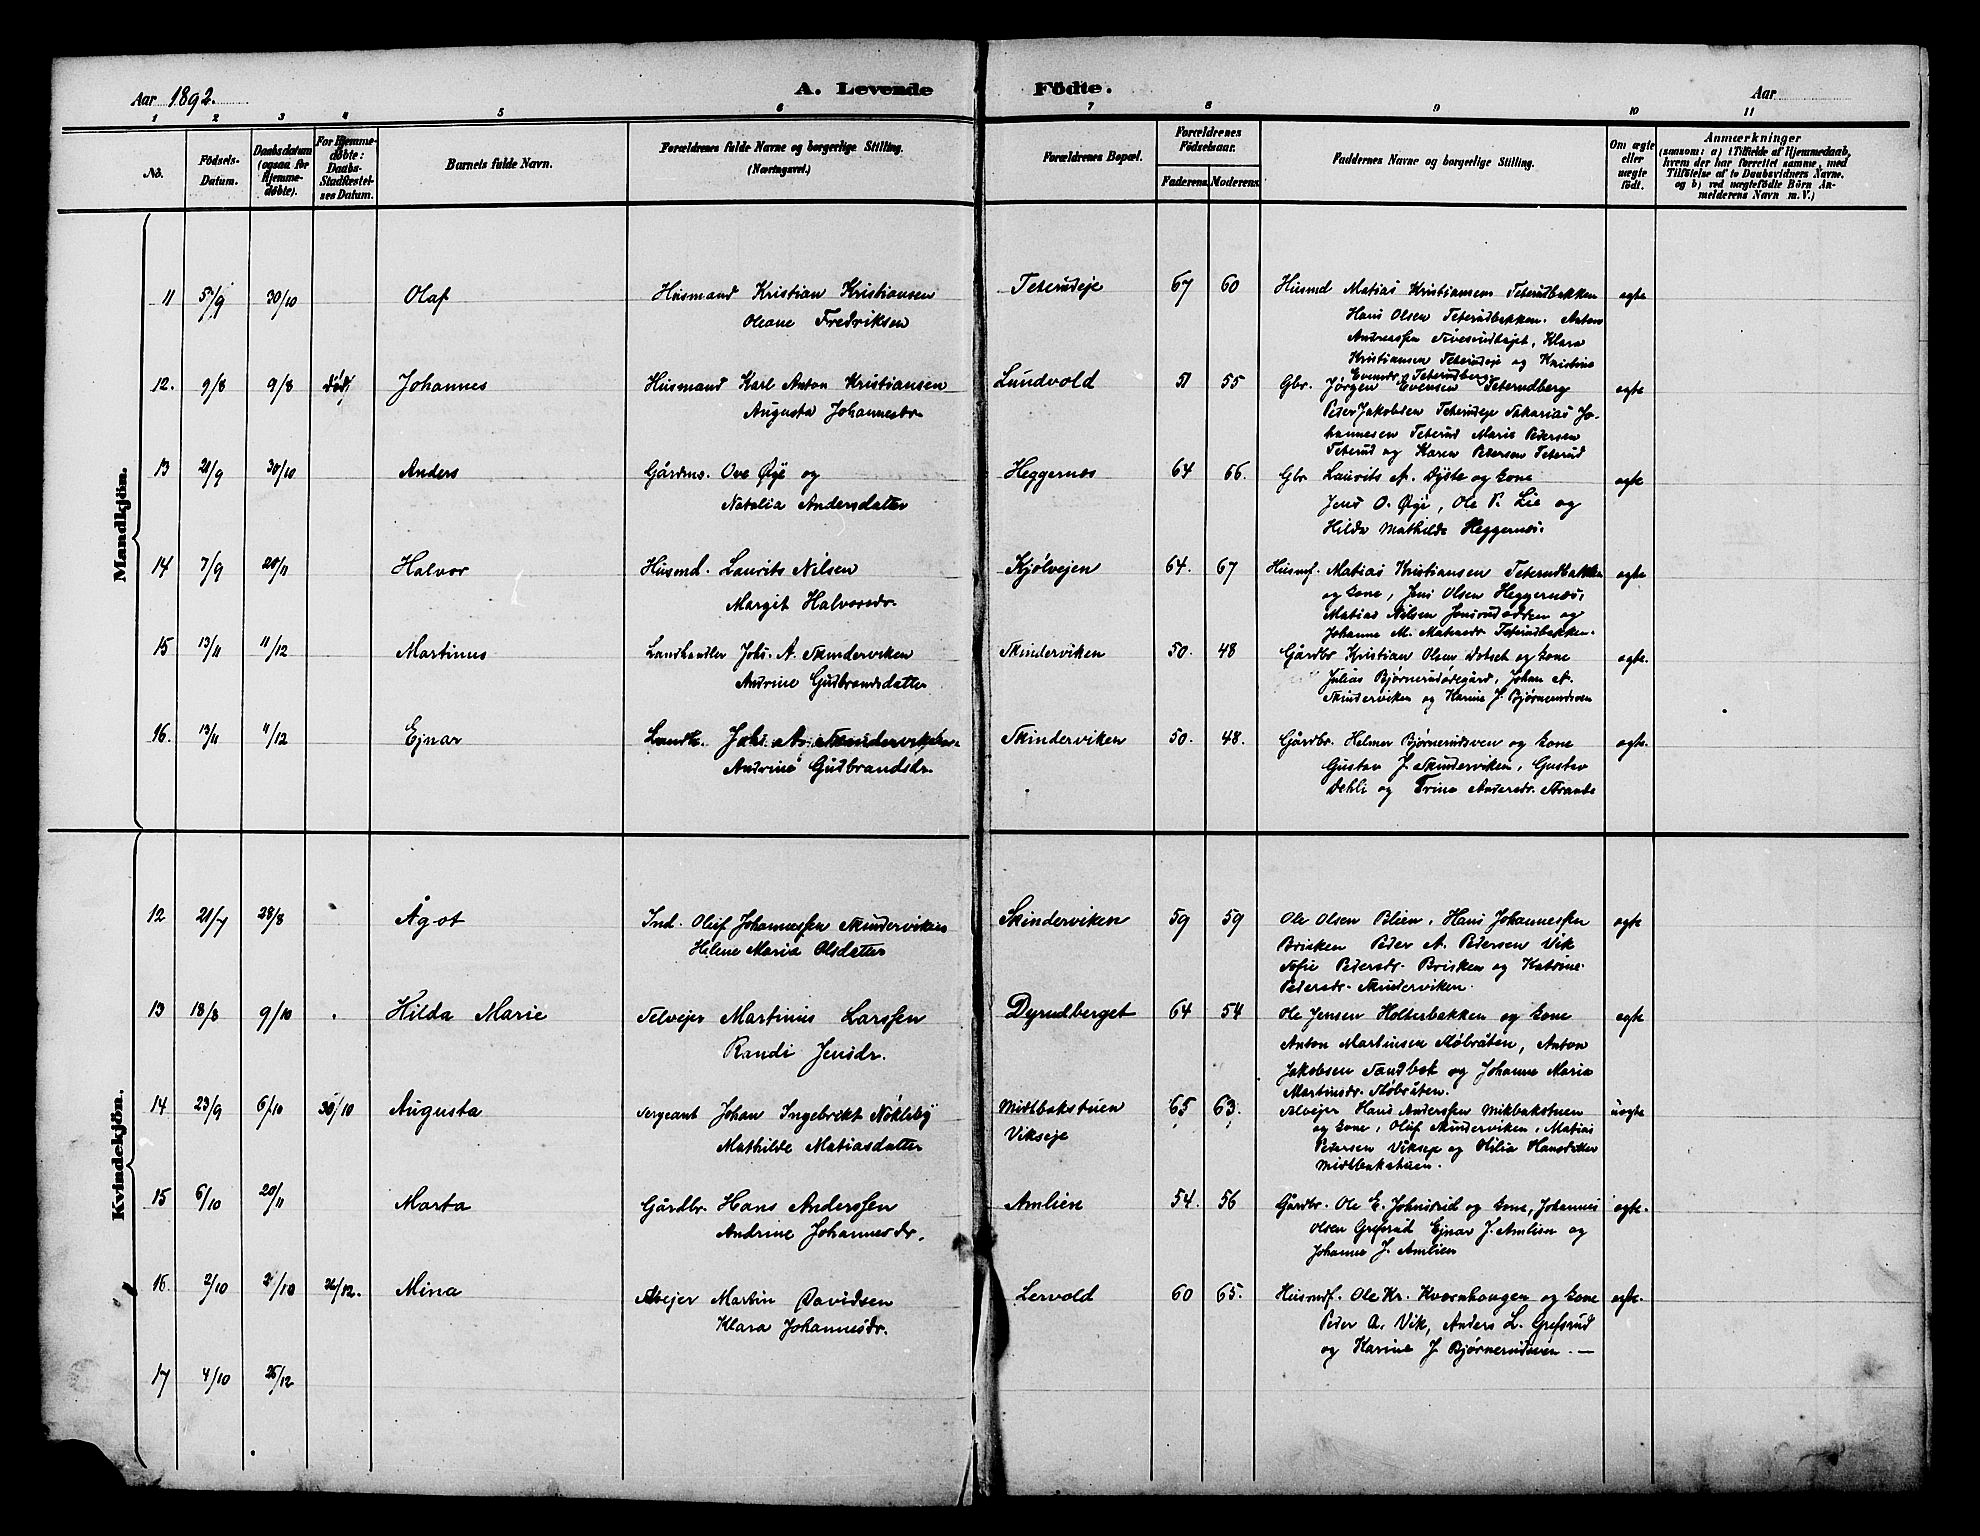 Aar 1892.
A. Levende Födte.
Aar
1 2 3 4 5 6 7 8 9 10 11
No.
Födsels-Datum.
Daabsdatum (ogsaa for Hjemme-döbte).
For Hjemme-döbte: Daabs-Stadfæstel-ses Datum.
Barnets fulde Navn.
Forældrenes fulde Navne og borgerlige Stilling.
(Næringsvei.)
Forældrenes Bopæl.
Forældrenes Födselsaar.
Faderens. Moderens.
Faddernes Navne og borgerlige Stilling.
Om ægte eller uægte födt.
Anmærkninger
(saasom: a) i Tilfælde af Hjemmedaab,
hvem der har forrettet samme, med
Tilföielse af to Daabsvidners Navne.
og b) ved uægtefödte Börn An-
melderens Navn m. V.)
Mandkjön.
11 5/9 30/10 Olaf Husmand Kristian Kristiansen Teterudeje 67 60 Husmd Matias Kristiansen Teterudbakken ægte
Oleane Fredriksen Hans Olsen Teterudbakken. Anton
Andreassen Klara
Kristiansen Teterudeje og Kristine
Evensdr. Teterudberg
12. 9/8 9/8 død Johannes Husmand Karl Anton Kristiansen Lundvold 51 55 Gbr. Jørgen Evensen Teterudberg ægte
Augusta Johannesdr. Peder Jakobsen Teterudeje Sakarias Jo-
hannesen Teterud Marie Pedersen
Teterud og Karen Pedersen Teterud
13 21/9 30/10 Anders Gårdms. Ove Øye og Heggernæs 64 66. Gbr Laurits A. Dyste og kone ægte
Natalia Andersdatter Jens O. Øye, Ole P. Lie og
Hilda Mathilde Heggernæs.
14 7/9 20/11 Halvor Husmd. Laurits Nilsen Kjølvejen 64. 67 Husmf. Matias Kristiansen Teterudbakken ægte
Margit Halvorsdr. og kone, Jens Olsen Heggernæs,
Matias Nilsen Jensrudodden og
Johanne M. Matisdr Teterudbakken.
15 13/11 11/12 Martinus Landhandler Johs. A. Skinderviken Skinderviken 50. 48 Gårdbr Kristian Olsen Dotset og kone ægte.
Andrine Gudbrandsdatter Julias Bjørnerudødegård, Johan A.
Skinderviken og Karine J. Bjørnerudsven
16. 13/11 11/12 Ejnar Landh. Johs. A. Skinderviken Skinderviken 50. 48. Gårdbr. Helmer Bjørnerudsven og kone ægte.
Andrine Gudbrandsdr. Gustav J. Skinderviken, Gustav
Dehli og Trine Andersdr. Strande
Kvindekjön.
12 21/7 28/8 Ågot Ind. Oluf Johannessen Skinderviken Skinderviken 59 59 Ole Olsen Blien, Hans Johannessen ægte
Helene Maria Olsdatter Brisken Peder A. Pedersen Vik
Sofie Pedersdr. Brisken og Katrine
Pedersdr. Skinderviken.
13 18/8 9/10 Hilda Marie Selvejer Martinus Larssen Dyrudberget 64 54 Ole Jensen Holterbakken og kone ægte
Randi Jensdr. Anton Martinsen Støbråten, Anton
Jakobsen Sandbæk og Johanne Maria
Martinsdr. Støbråten.
14 23/9 6/10 30/10 Augusta Sergeant Johan Ingebrikt Nøkleby Midtbakstuen 65 63. Selvejer Hans Anderssen Midtbakstuen uægte
Mathilde Matiasdatter Vikseje og kone, Oluf Skinderviken, Matias
Pedersen Vikseje og Olilia Hansdatter
Midtbakstuen.
15 6/10 20/11 Marta Gårdbr. Hans Anderssen Amlien 54. 56 Gårdbr. Ole E. Johnsrud og kone, Johannes ægte.
Andrine Johannesdr. Olsen Grefsrud Ejnar J. Amlien og
Johanne J. Amlien
16. 2/10 2/10 26/12. Mina Selvejer Martin Davidsen Lervold 60 65. Husmdf. Ole Kr. Kværnhaugen og kone ægte.
Klara Johannesdr. Peder A. Vik, Anders L. Grefsrud
og Karine J Bjørnerudsven. —
17 4/10 26/12